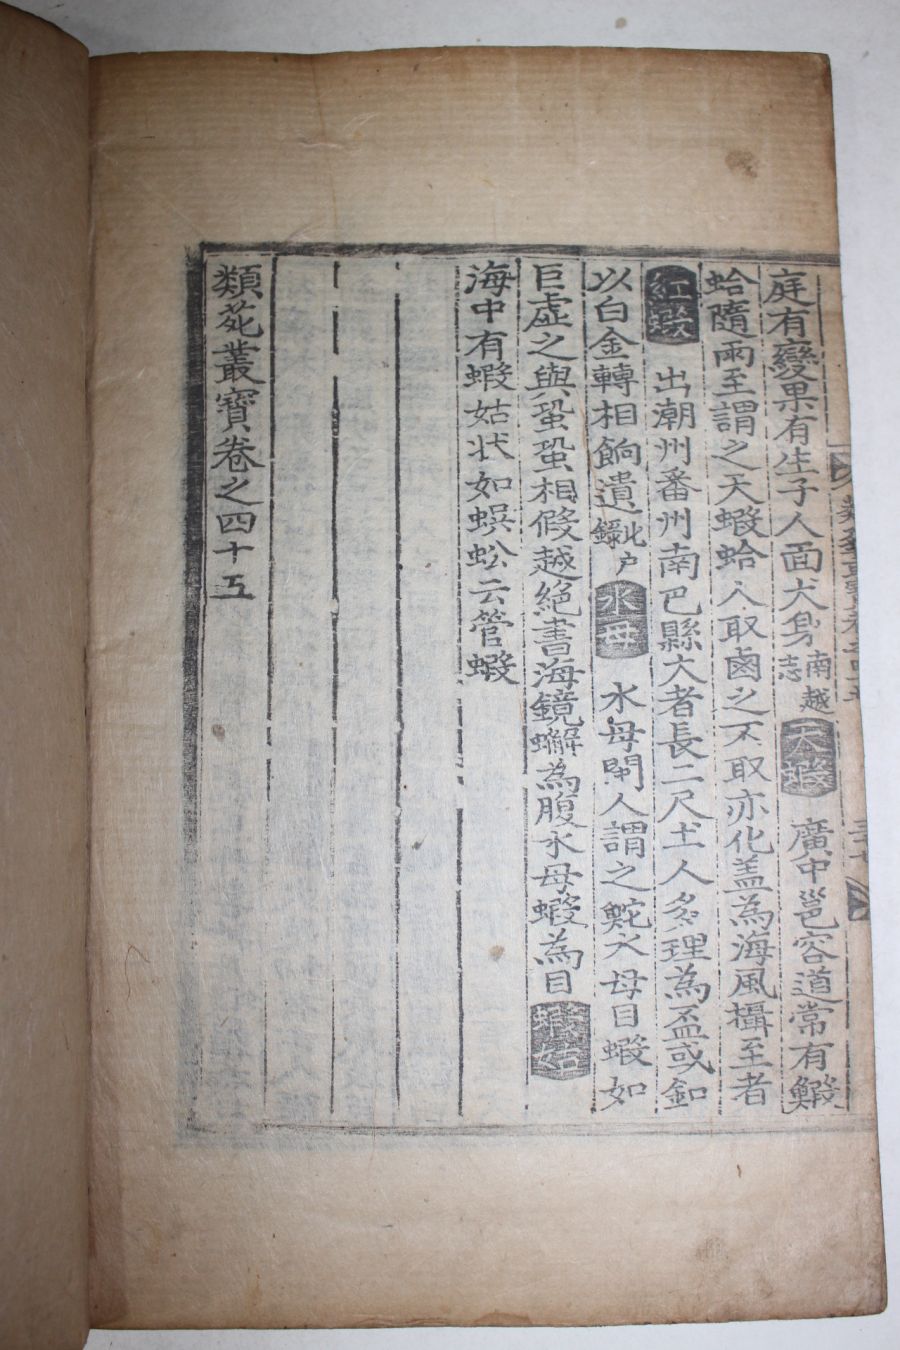 庭有變果有生子人面犬身南越志天蝦廣中邕容道常有鰕
蛤隨雨至謂之天蝦蛤人取鹵之不取亦化盖為海風攝至者
紅蝦出潮州番州南巴縣大者長二尺土人多理為盃或釦
以白金轉相餉遺北户錄水母水母閩人謂之鮀水母目蝦如
巨虛之與蛩蛩相假越絕書海鏡蠏為腹水母蝦為目蝦姑
海中有蝦姑状如蜈蚣云管蝦
類苑叢寶卷之四十五